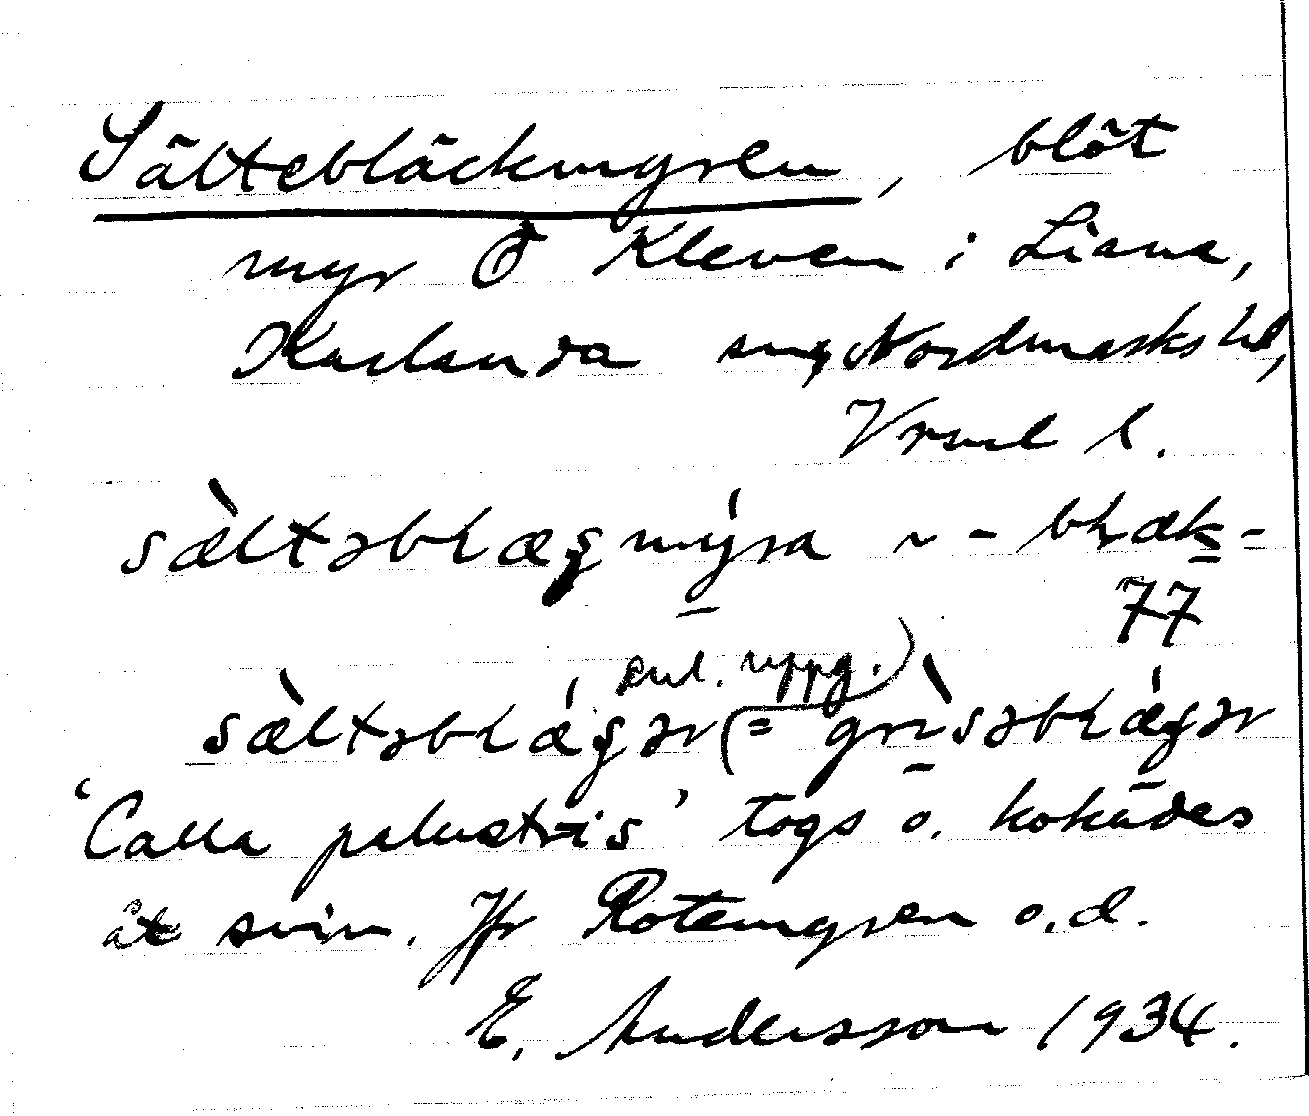 Sältebläckmyren, blöt
myr Ö Kleven i Liane,
Karlanda sn, Nordmarks hd,
Vrml l.
sæ̀ltəbɫæʂmýra ~ -bɫæk-
77
enl. uppg.)
sæ̀ltəbɫǽʂər (= grìsəbɫǽʂər
'Calla palustris' togs o. kokades
åt svin. Jfr Rotemyren o.d.
E. Andersson 1934.